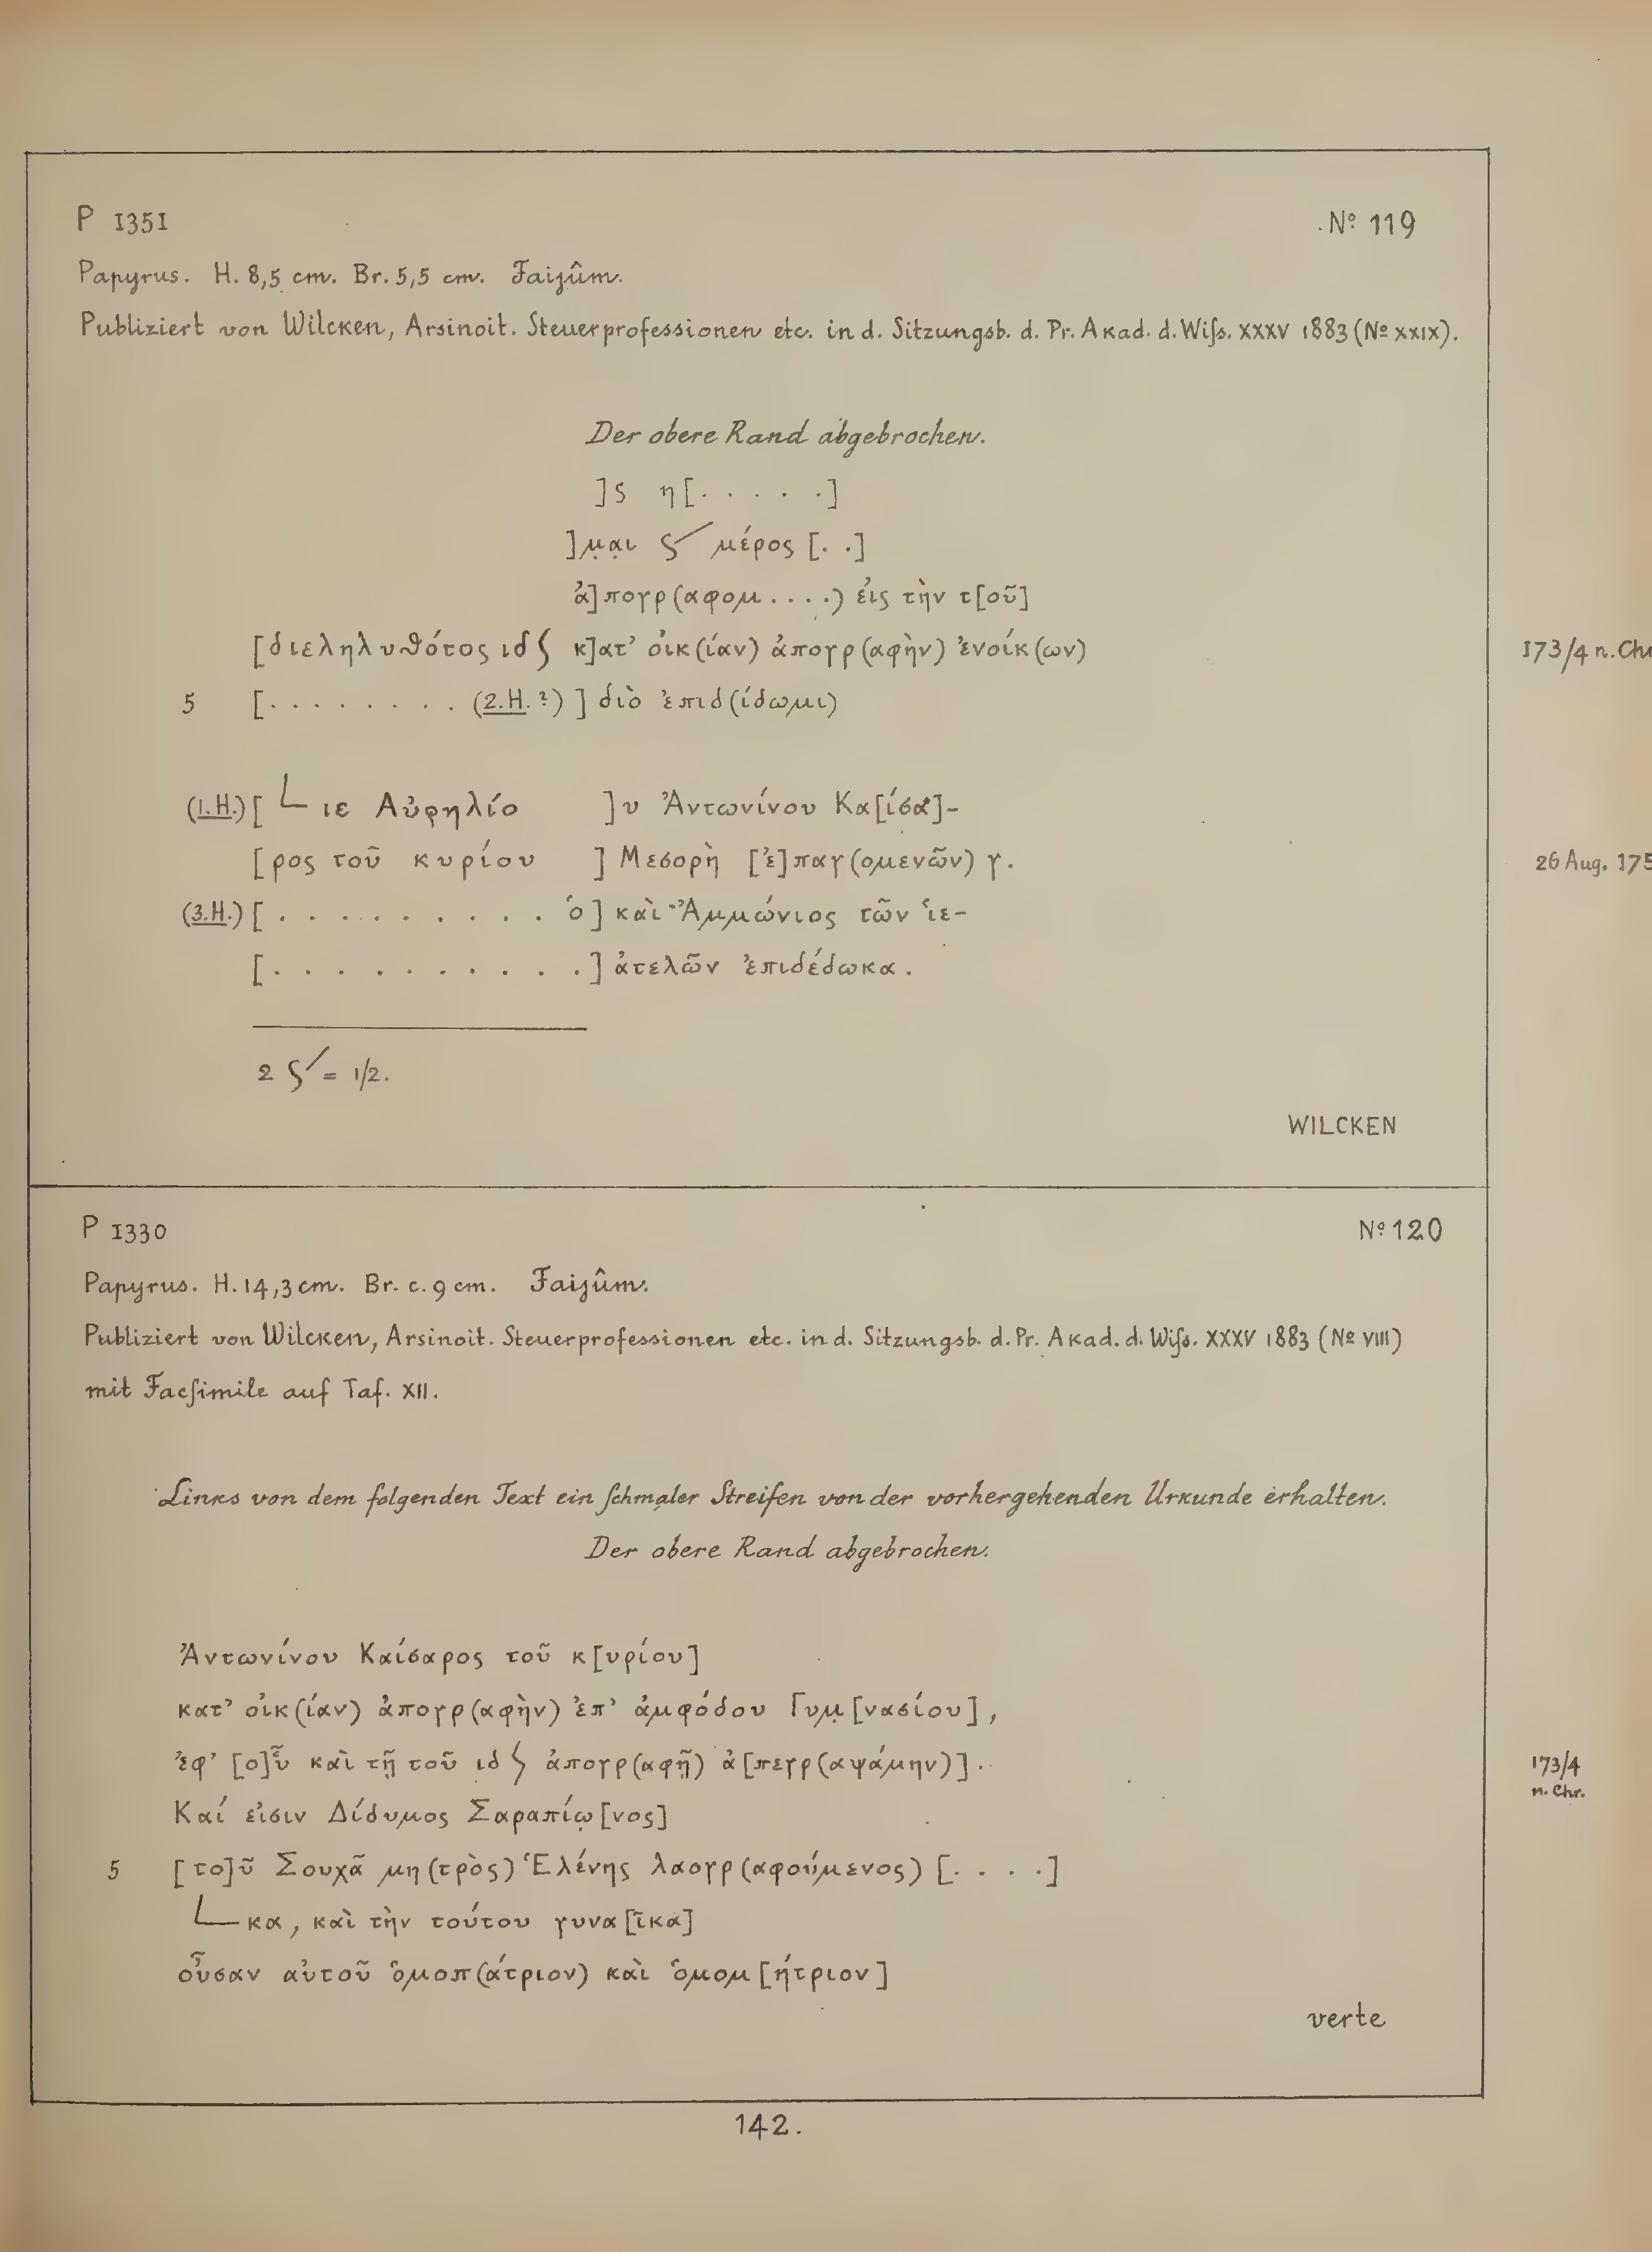 P 1351 Nº 119
Papyrus. H. 8,5 cm. Br. 5,5 cm. Faijûm.
Publiziert von Wilcken, Arsinoit. Steuerprofessionen etc. in d. Sitzungsb. d. Pr. Akad. d. Wiſs. XXXV 1883 (Nº XXIX).
Der obere Rand abgebrochen.
]ς η[. . . . .]
]μ̣α̣ι ϛ ́ μέρος [. .]
ἀ]πογρ(αφομ . . . .) εἰς τὴν τ[οῦ]
[διεληλυθότος ιδ ʃ κ]ατ’ οἰκ(ίαν) ἀπογρ(αφὴν) ἐνοίκ(ων) 173/4 n. Chr
5 [. . . . . . . . (2.H.?) ] διὸ ἐπιδ(ίδωμι)
(1.H.) [ L ιε Αὐρηλίο ]υ Ἀντωνίνου Κα[ίσα]-
[ρος τοῦ κυρίου ] Μεσορὴ [ἐ]παγ(ομενῶν) γ. 26 Aug. 175
(3.H.) [. . . . . . . . . . . ὁ] καὶ Ἀμμώνιος τῶν ἱε-
[. . . . . . . . . . . .] ἀτελῶν ἐπιδέδωκα.
2 ϛ ́ = 1/2.
WILCKEN
P 1330 Nº 120
Papyrus. H. 14,3 cm. Br. c. 9 cm. Faijûm.
Publiziert von Wilcken, Arsinoit. Steuerprofessionen etc. in d. Sitzungsb. d. Pr. Akad. d. Wiſs. XXXV 1883 (Nº VIII)
mit Facſimile auf Taf. XII.
Links von dem folgenden Text ein ſchmaler Streifen von der vorhergehenden Urkunde erhalten.
Der obere Rand abgebrochen.
Ἀντωνίνου Καίσαρος τοῦ κ[υρίου]
κατ’ οἰκ(ίαν) ἀπογρ(αφὴν) ἐπ’ ἀμφόδου Γυμ̣[νασίου],
ἐφ’ [ο]ὗ καὶ τῇ τοῦ ιδ ʃ ἀπογρ(αφῇ) ἀ[πεγρ(αψάμην)]. 173/4
n. Chr.
Καί εἰσιν Δίδυμος Σαραπίω̣[νος]
5 [το]ῦ Σουχᾶ μη(τρὸς) Ἑλένης λαογρ(αφούμενος) [. . . .]
L κα, καὶ τὴν τούτου γυνα[ῖκα]
οὖσαν αὐτοῦ ὁμοπ(άτριον) καὶ ὁμομ[ήτριον]
verte
142.